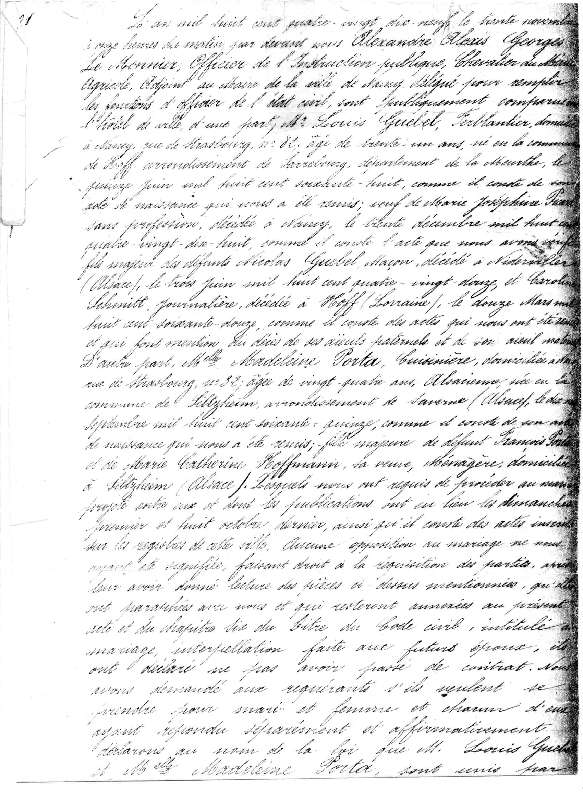 21
L'an mil huit cent quatre-vingt dix-neuf, le trente novembre
à onze heures du matin, par devant nous Alexandre Alexis Georges
Le Monnier, Officier de l'Instruction publique, Chevalier du Mérite
Agricole, Adjoint au Maire de la ville de Nancy, délégué pour remplir
les fonctions d'officier de l'état civil, sont publiquement comparus
l'hôtel de ville, d'une part, Mr Louis Guebel, Ferblantier,
à Nancy, rue de Strasbourg, no 82, âgé de trente-un ans, né en la commune
de Hoff, arrondissement de Sarrebourg, département de la Meurthe, le
quinze juin mil huit cent soixante-huit, comme il conste de son
acte de naissance qui nous a été remis; veuf de Marie Joséphine
sans profession, décédée à Nancy, le trente décembre mil huit cent
quatre-vingt-dix-huit, comme il conste l'acte que nous avons vérifié
fils majeur des défunts Nicolas Guebel, Maçon, décédé à Niderviller
(Alsace), le trois juin mil huit cent quatre-vingt douze, et Caroline
Schmitt, journalière, décédée à Hoff (Lorraine), le douze Mars mil
huit cent soixante-douze, comme il conste des actes qui nous ont été remis
et qui font mention du décès de ses aïeuls paternels et de son aïeul maternel
D'autre part, Melle Madeleine Porta, Cuisinière, domiciliée à Nancy
rue de Strasbourg, no 82, âgée de vingt-quatre ans, Alsacienne, née en la
commune de Siltzheim, arrondissement de Saverne (Alsace), le dix
septembre mil huit cent soixante-quinze, comme il conste de son acte
de naissance qui nous a été remis; fille majeure de défunt François Porta
et de Marie Catherine Hoffmann, sa veuve, Ménagère, domiciliée
à Siltzheim (Alsace). Lesquels nous ont requis de procéder au mariage
projeté entre eux et dont les publications ont eu lieu les dimanches
premier et huit octobre dernier, ainsi qu'il conste des actes inscrits
sur les registres de cette ville. Aucune opposition au mariage ne nous
ayant été signifiée, faisant droit à la réquisition des parties, après
leur avoir donné lecture des pièces ci dessus mentionnées, qu'elles
ont paraphées avec nous et qui resteront annexées au présent
acte et du chapitre six du titre du Code civil, intitulé du
mariage, interpellation faite aux futurs époux, ils
ont déclaré ne pas avoir passé de contrat. Nous
avons demandé aux requérants s'ils veulent se
prendre pour mari et femme et chacun d'eux
ayant répondu séparément et affirmativement,
déclarons au nom de la loi que M. Louis Guebel
et Melle Madeleine Porta, sont unis par